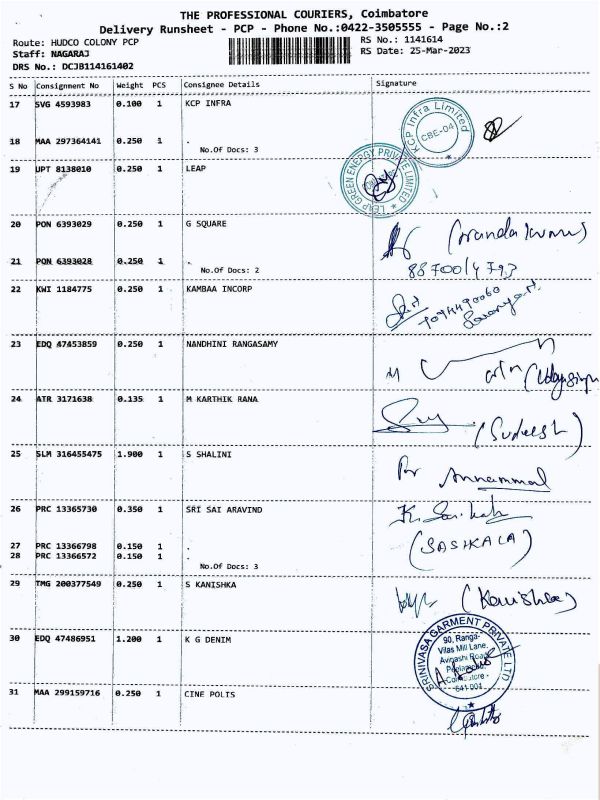 THE PROFESSIONAL COURIERS, Coimbatore
Delivery Runsheet - PCP - Phone No.:0422-3505555 - Page No.:2
Route: HUDCO COLONY PCP
RS No.: 1141614
Staff: NAGARAJ
RS Date: 25-Mar-2023
DRS No.: DCJB114161402
S No Consignment No Weight PCS Consignee Details Signature
17 SVG 4593983 0.100 1 KCP INFRA
KCP Infra Limited CBE-04
18 MAA 297364141 0.250 1 .
No.Of Docs: 3
19 UPT 8138010 0.250 1 LEAP
LEAP GREEN ENERGY PRIVATE LIMITED
20 PON 6393029 0.250 1 G SQUARE
21 PON 6393028 0.250 1 .
No.Of Docs: 2
22 KWI 1184775 0.250 1 KAMBAA INCORP
23 EDQ 47453859 0.250 1 NANDHINI RANGASAMY
24 ATR 3171638 0.135 1 M KARTHIK RANA
(Sudeesh)
25 SLM 316455475 1.900 1 S SHALINI
Annammal
26 PRC 13365730 0.350 1 SRI SAI ARAVIND
K. Sasikala
27 PRC 13366798 0.150 1 .
(SASIKALA)
28 PRC 13366572 0.150 1 .
No.Of Docs: 3
29 TMG 200377549 0.250 1 S KANISHKA
(Kanishka)
30 EDQ 47486951 1.200 1 K G DENIM
SRINIVASA GARMENT PRIVATE LTD
90, Ranga-
Vilas Mill Lane,
Avinashi Road
Peelamedu,
Coimbatore -
641 004
31 MAA 299159716 0.250 1 CINE POLIS